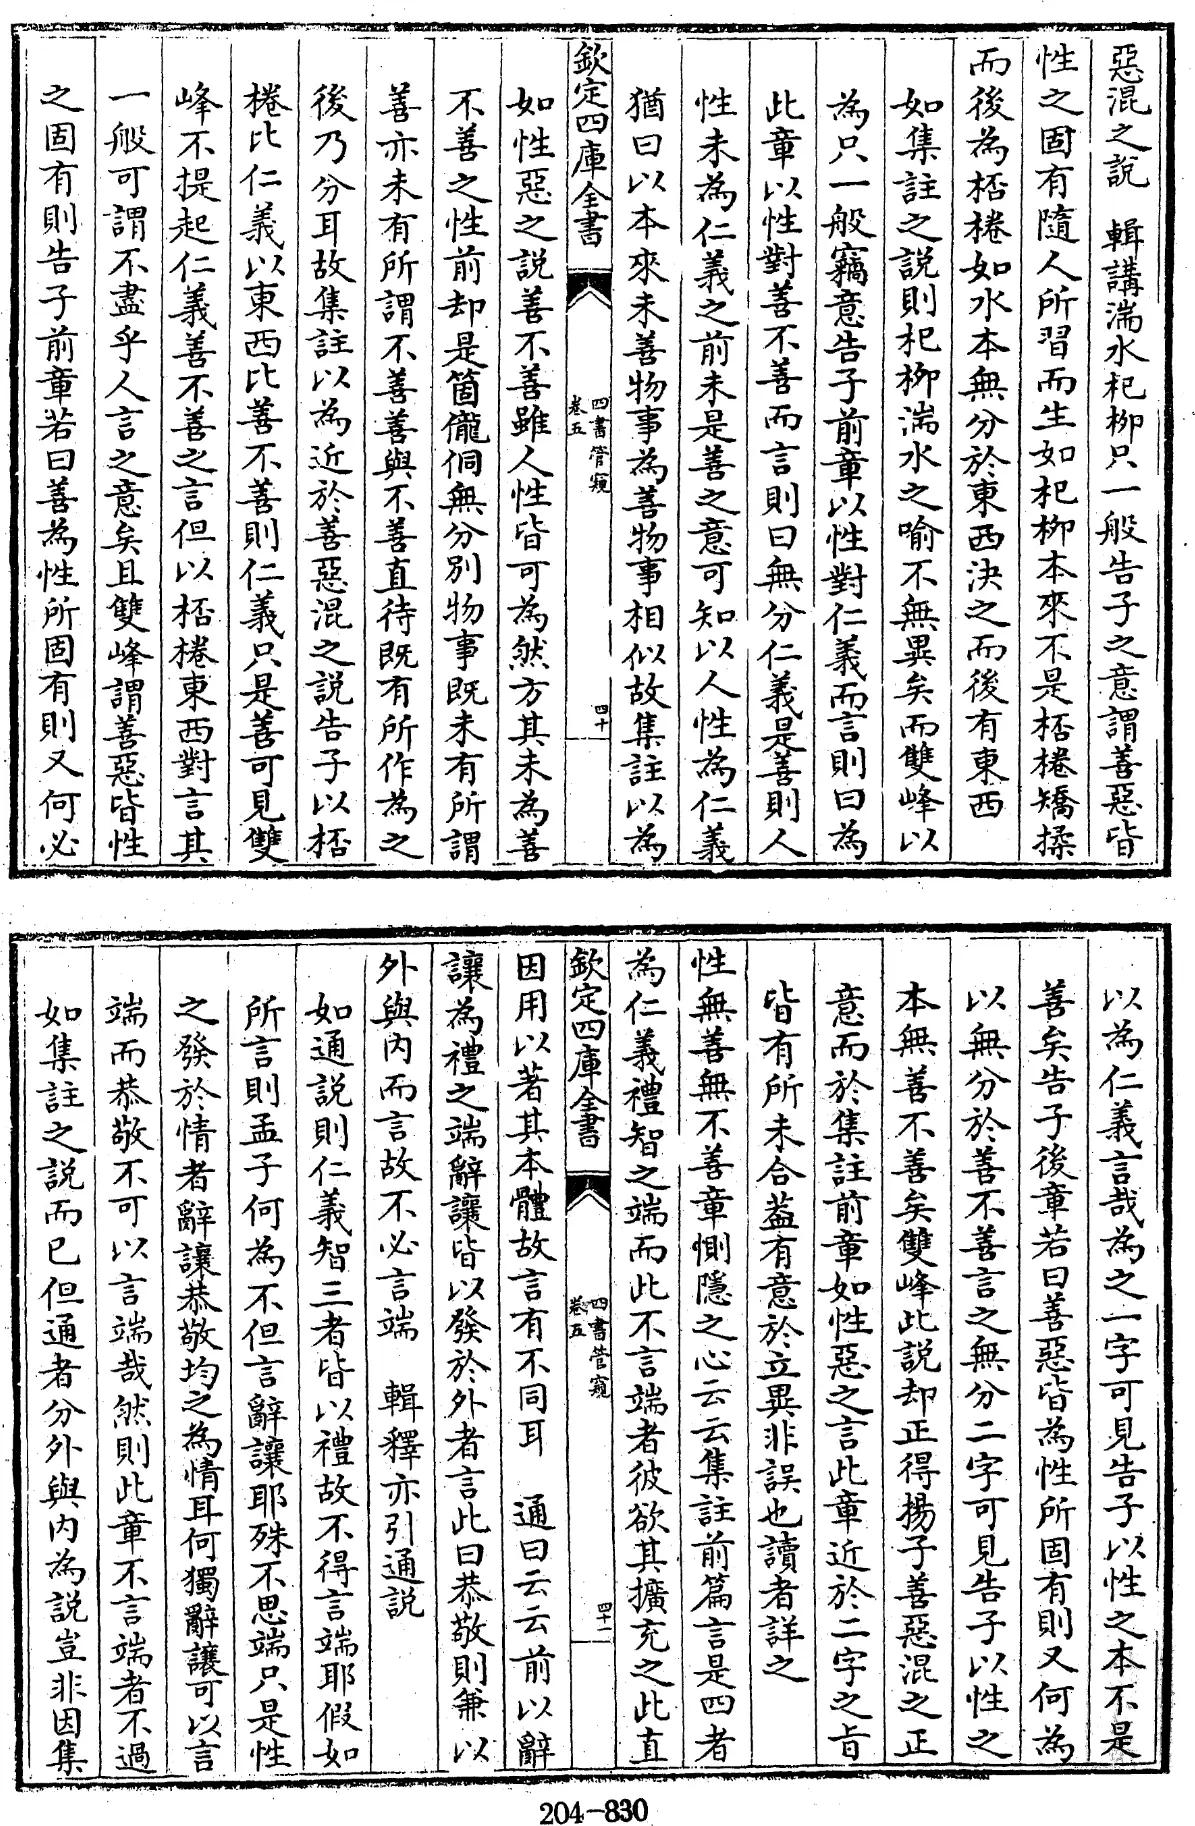 惡混之說　輯講湍水杞柳只一般告子之意謂善惡皆
性之固有隨人所習而生如杞柳本來不是桮棬矯揉
而後為桮棬如水本無分於東西決之而後有東西
如集註之說則杞柳湍水之喻不無異矣而雙峰以
為只一般竊意告子前章以性對仁義而言則曰為
此章以性對善不善而言則曰無分仁義是善則人
性未為仁義之前未是善之意可知以人性為仁義
猶曰以本來未善物事為善物事相似故集註以為
欽定四庫全書
四書管窺
卷五
四十
如性惡之說善不善雖人性皆可為然方其未為善
不善之性前却是箇儱侗無分別物事既未有所謂
善亦未有所謂不善善與不善直待既有所作為之
後乃分耳故集註以為近於善惡混之說告子以桮
棬比仁義以東西比善不善則仁義只是善可見雙
峰不提起仁義善不善之言但以桮棬東西對言其
一般可謂不盡乎人言之意矣且雙峰謂善惡皆性
之固有則告子前章若曰善為性所固有則又何必
以為仁義言哉為之一字可見告子以性之本不是
善矣告子後章若曰善惡皆為性所固有則又何為
以無分於善不善言之無分二字可見告子以性之
本無善不善矣雙峰此說却正得揚子善惡混之正
意而於集註前章如性惡之言此章近於二字之旨
皆有所未合葢有意於立異非誤也讀者詳之
性無善無不善章惻隱之心云云集註前篇言是四者
為仁義禮智之端而此不言端者彼欲其擴充之此直
欽定四庫全書
四書管窺
卷五
四十一
因用以著其本體故言有不同耳　通曰云云前以辭
讓為禮之端辭讓皆以發於外者言此曰恭敬則兼以
外與內而言故不必言端　輯釋亦引通說
如通說則仁義智三者皆以禮故不得言端耶假如
所言則孟子何為不但言辭讓耶殊不思端只是性
之發於情者辭讓恭敬均之為情耳何獨辭讓可以言
端而恭敬不可以言端哉然則此章不言端者不過
如集註之說而已但通者分外與內為說豈非因集
204-830